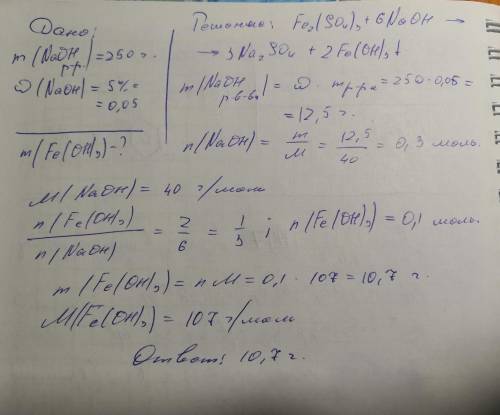 Дано:
m(NaOH р-р) = 250 г.
ω(NaOH) = 5% =
= 0,05
m(Fe(OH)₃) - ?
Решение: Fe₂(SO₄)₃ + 6NaOH →
→ 3Na₂SO₄ + 2Fe(OH)₃↓
m(NaOH р-в-ва) = ω · m р-ра = 250 · 0,05 =
= 12,5 г.
n(NaOH) = m/M = 12,5/40 = 0,3 моль.
M(NaOH) = 40 г/моль
n(Fe(OH)₃)/n(NaOH) = 2/6 = 1/3 ; n(Fe(OH)₃) = 0,1 моль.
m(Fe(OH)₃) = nM = 0,1 · 107 = 10,7 г.
M(Fe(OH)₃) = 107 г/моль
Ответ: 10,7 г.